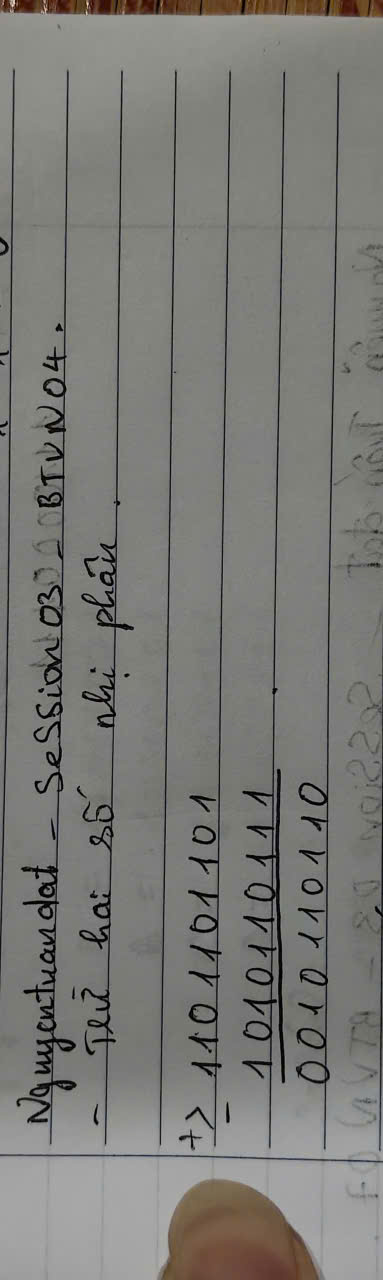 Nguyentuandat - Session 03 - BTVN04.
- Trừ hai số nhị phân.
+> 1101101101
-
1010110111
0010110110